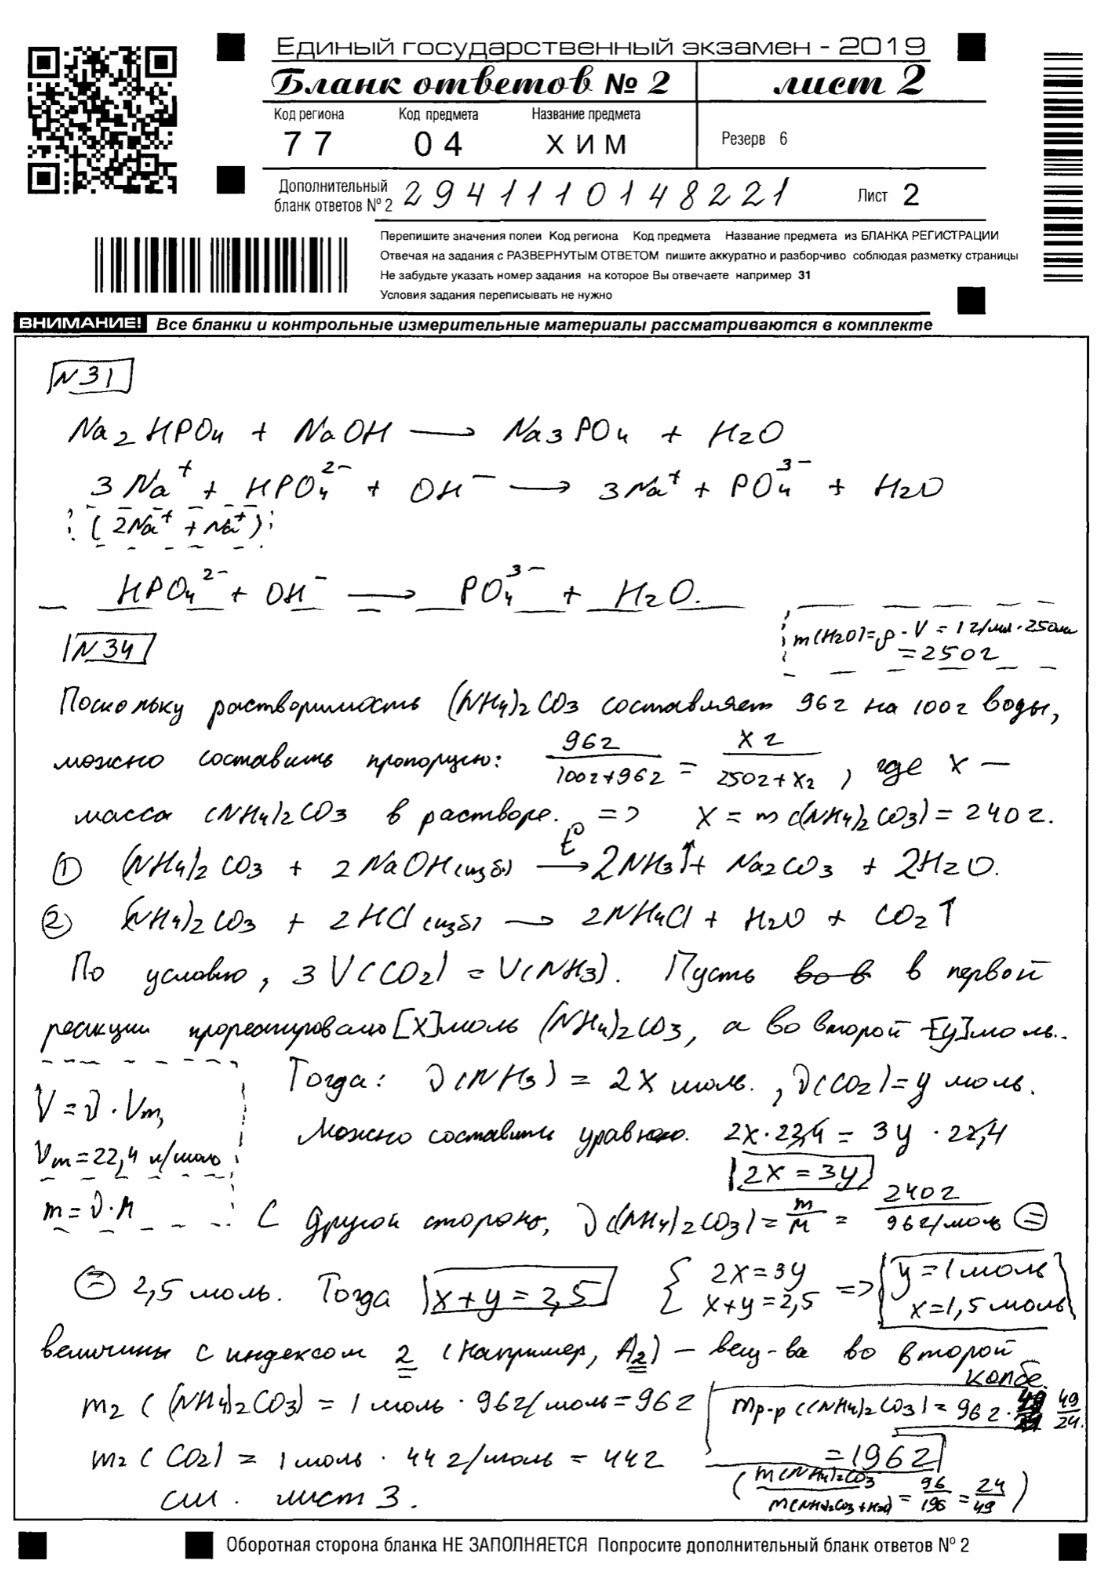 Единый государственный экзамен - 2019
Бланк ответов № 2
лист 2
Код региона
Код предмета
Название предмета
Резерв 6
77
04
ХИМ
Дополнительный
бланк ответов № 2
2941110148221
Лист 2
Перепишите значения полеи Код региона Код предмета Название предмета из БЛАНКА РЕГИСТРАЦИИ
Отвечая на задания с РАЗВЕРНУТЫМ ОТВЕТОМ пишите аккуратно и разборчиво соблюдая разметку страницы
Не забудьте указать номер задания на которое Вы отвечаете например 31
Условия задания переписывать не нужно
ВНИМАНИЕ! Все бланки и контрольные измерительные материалы рассматриваются в комплекте
N31
Na2HPO4 + NaOH ⟶ Na3PO4 + H2O
3Na⁺ + HPO4²⁻ + OH⁻ ⟶ 3Na⁺ + PO4³⁻ + H2O
(2Na⁺ + Na⁺)
HPO4²⁻ + OH⁻ ⟶ PO4³⁻ + H2O.
N34
m(H2O)=ρ·V = 1г/мл·250мл
=250г
Поскольку растворимость (NH4)2CO3 составляет 96г на 100г воды,
можно составить пропорцию: 96г/(100г+96г) = Xг/(250г+Xг), где X —
масса (NH4)2CO3 в растворе. => X = m((NH4)2CO3) = 240г.
① (NH4)2CO3 + 2NaOH(изб) ⟶ t° 2NH3↑ + Na2CO3 + 2H2O.
② (NH4)2CO3 + 2HCl(изб) ⟶ 2NH4Cl + H2O + CO2↑
По условию, 3V(CO2) = V(NH3). Пусть в первой
реакции прореагировало [X]моль (NH4)2CO3, а во второй -[y]моль.
Тогда: ν(NH3) = 2X моль., ν(CO2)=y моль.
V=ν·Vm,
Можно составить уравнение. 2X·22,4 = 3y·22,4
Vm=22,4 л/моль
2X = 3y
m=ν·M
С другой стороны, ν((NH4)2CO3)= m/M = 240г/96г/моль ⊜
⊜ 2,5 моль. Тогда x+y=2,5 { 2X=3y x+y=2,5 => y=1моль x=1,5моль
величины с индексом 2 (Например, A2) – вещ-ва во второй
колбе.
m2((NH4)2CO3) = 1 моль · 96г/моль = 96г
mр-р((NH4)2CO3) = 96г· 49/24.
=196г
m2(CO2) = 1моль · 44г/моль = 44г
(m(NH4)2CO3/m(NH4)2CO3+H2O) = 96/196 = 24/49)
см. лист 3.
Оборотная сторона бланка НЕ ЗАПОЛНЯЕТСЯ Попросите дополнительный бланк ответов № 2